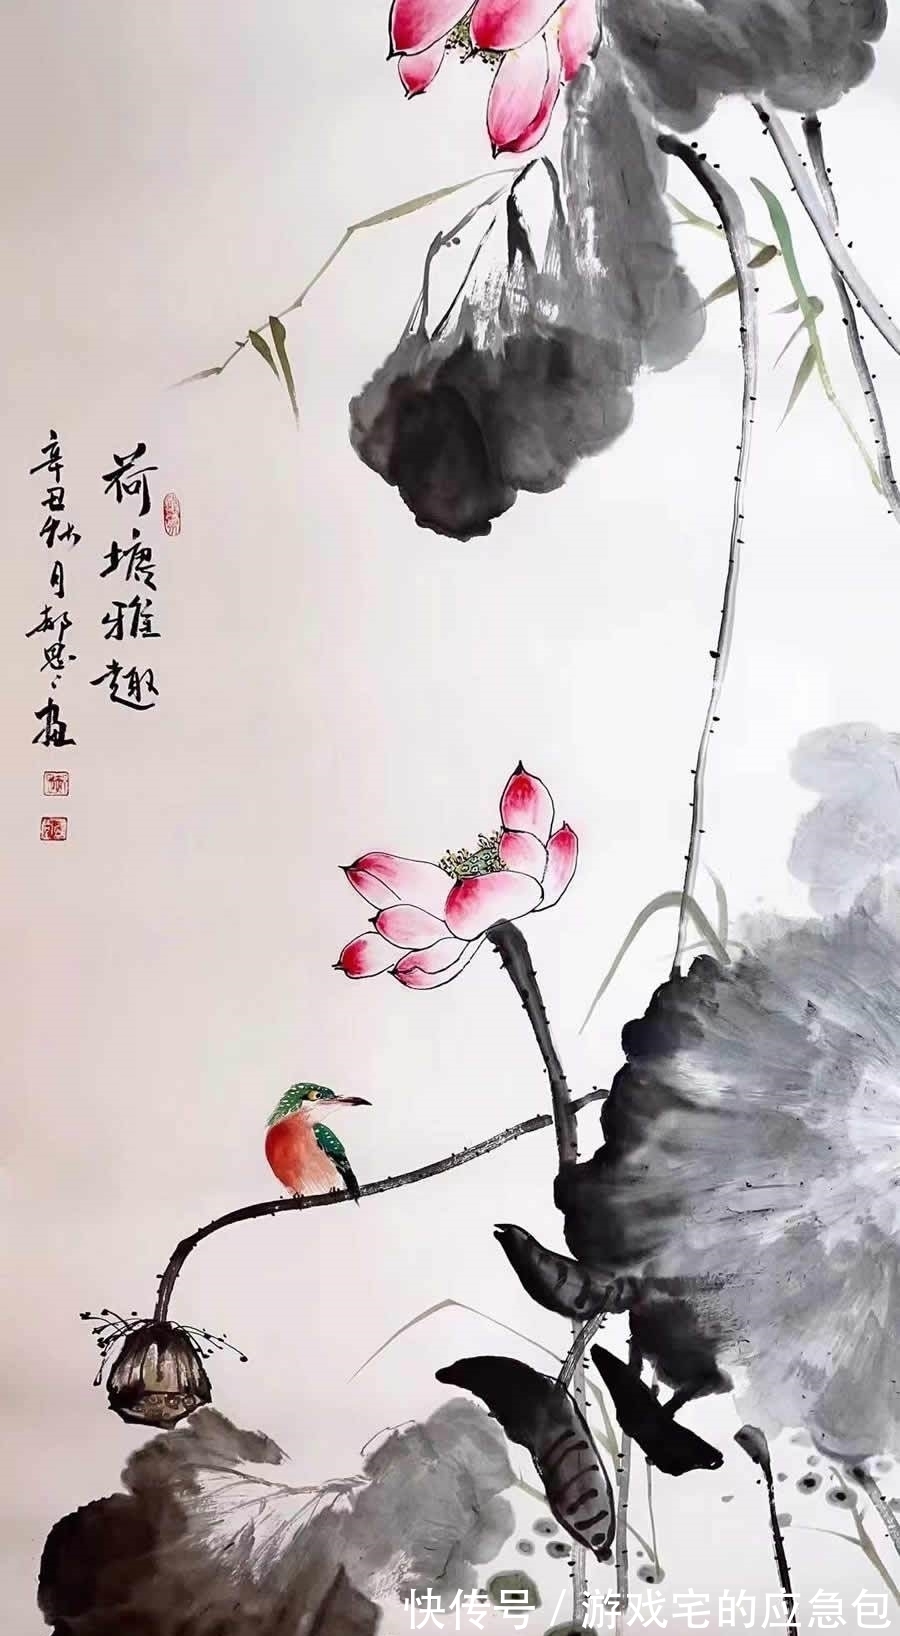 荷塘雅趣
辛丑秋月郝思々画
快传号/游戏宅的应急包